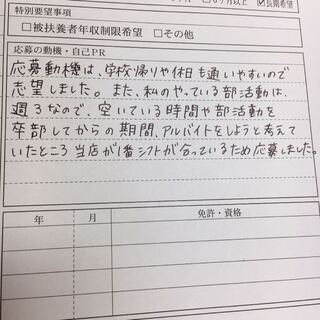 □6ヶ月以上 ☑長期希望
特別要望事項
□被扶養者年収制限希望 □その他
応募の動機・自己PR
応募動機は、学校帰りや休日も通いやすいので
志望しました。また、私のやっている部活動は、
週3なので、空いている時間や部活動を
卒部してからの期間、アルバイトをしようと考えて
いたところ当店が1番シフトが合っているため応募しました。
年 月 免許・資格